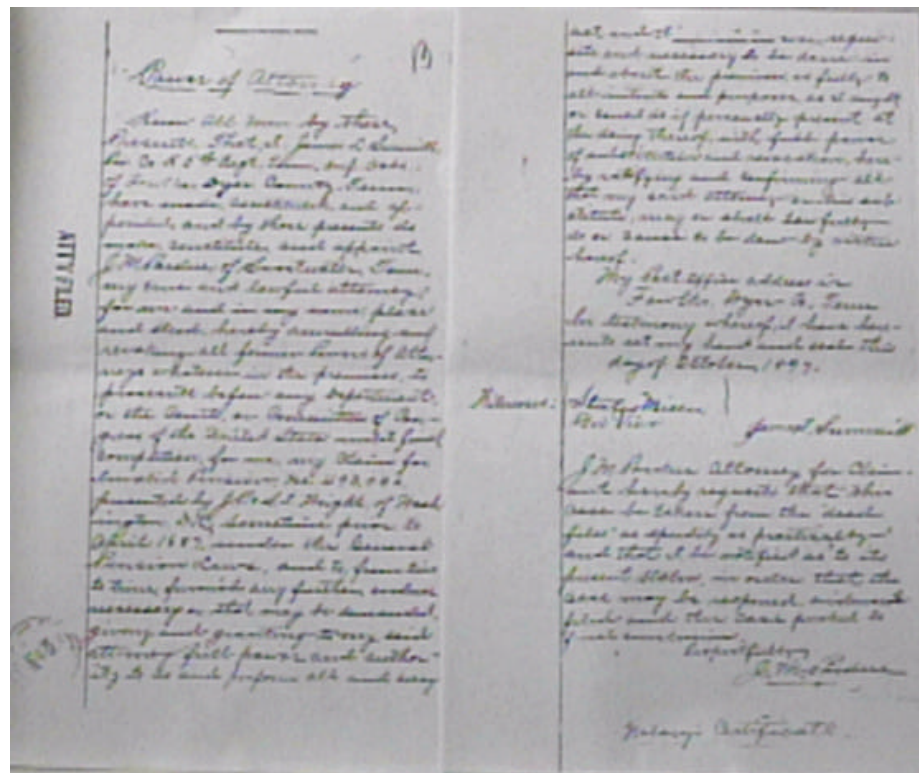 Power of Attorney
Know All men by these
Presents, That I, James S. Summitt
of Dyer County Tenn.
have made, constituted and ap-
pointed, and by these presents do
make, constitute and appoint
J. M. Pardue of Tenn.
my true and lawful attorney,
for me and in my name, place
and stead, hereby annulling and
revoking all former Powers of Attor-
neys whatever in the premises, to
prosecute before any Department
or the Courts, or Committees of Con-
gress of the United States until final
completion, for me, my Claim for
Invalid Pension, No.
presented by Wright, of Wash
ington D.C., sometime prior to
April 1887 under the General
Pension Laws, and to, from time
to time, furnish any further evidence
necessary or that may be demanded,
giving and granting to my said
attorney full power and author-
ity to do and perform all and every
ATTY FLED
act and requi-
site and necessary to be done in
and about the premises, as fully to
all intents and purposes as I might
or could do if personally present at
the doing thereof, with full power
of substitution and revocation, here-
by ratifying and confirming all
that my said attorney or his sub
stitute, may or shall lawfully
do or cause to be done by virtue
hereof.
My Post Office address is
Dyer Co. Tenn
In testimony whereof, I have here-
unto set my hand and seal this
day of October 1897.
Witnesses:
James S. Summitt
J. M. Pardue Attorney for Claim-
ant hereby requests that this
case be taken from the "dead
files" as speedily as practicable
and that I be notified as to its
present status, in order that the
case may be reopened, evidence
filed and the case pushed to
final conclusion.
Respectfully
J. M. Pardue
Notary's Certificate